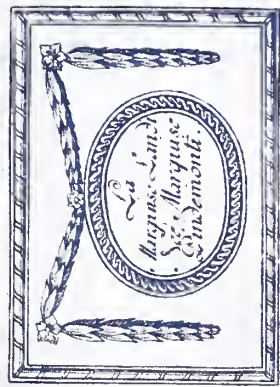 La
Marquise Landi
Née Marquise
Pindemonti.